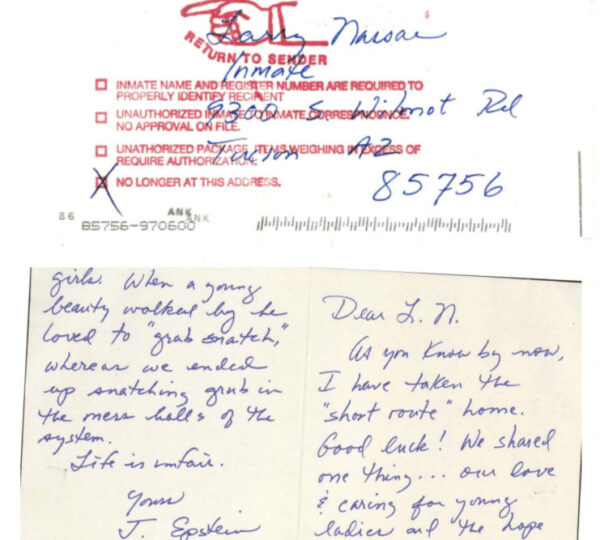 Larry Nassar
RETURN TO SENDER
Inmate
INMATE NAME AND REGISTER NUMBER ARE REQUIRED TO
PROPERLY IDENTIFY RECIPIENT
9300 S. Wilmot Rd
UNAUTHORIZED INMATE TO INMATE CORRESPONDENCE
NO APPROVAL ON FILE.
Tucson AZ
UNATHORIZED PACKAGE, ITEMS WEIGHING IN EXCESS OF
REQUIRE AUTHORIZATION.
85756
NO LONGER AT THIS ADDRESS.
86
ANK
ANK
85756-970600
girls. When a young
beauty walked by he
loved to "grab snatch,"
whereas we ended
up snatching grub in
the mess halls of the
system.
Life is unfair.
Yours
J. Epstein
Dear L. N.
As you know by now,
I have taken the
"short route" home.
Good luck! We shared
one thing... our love
& caring for young
ladies and the hope